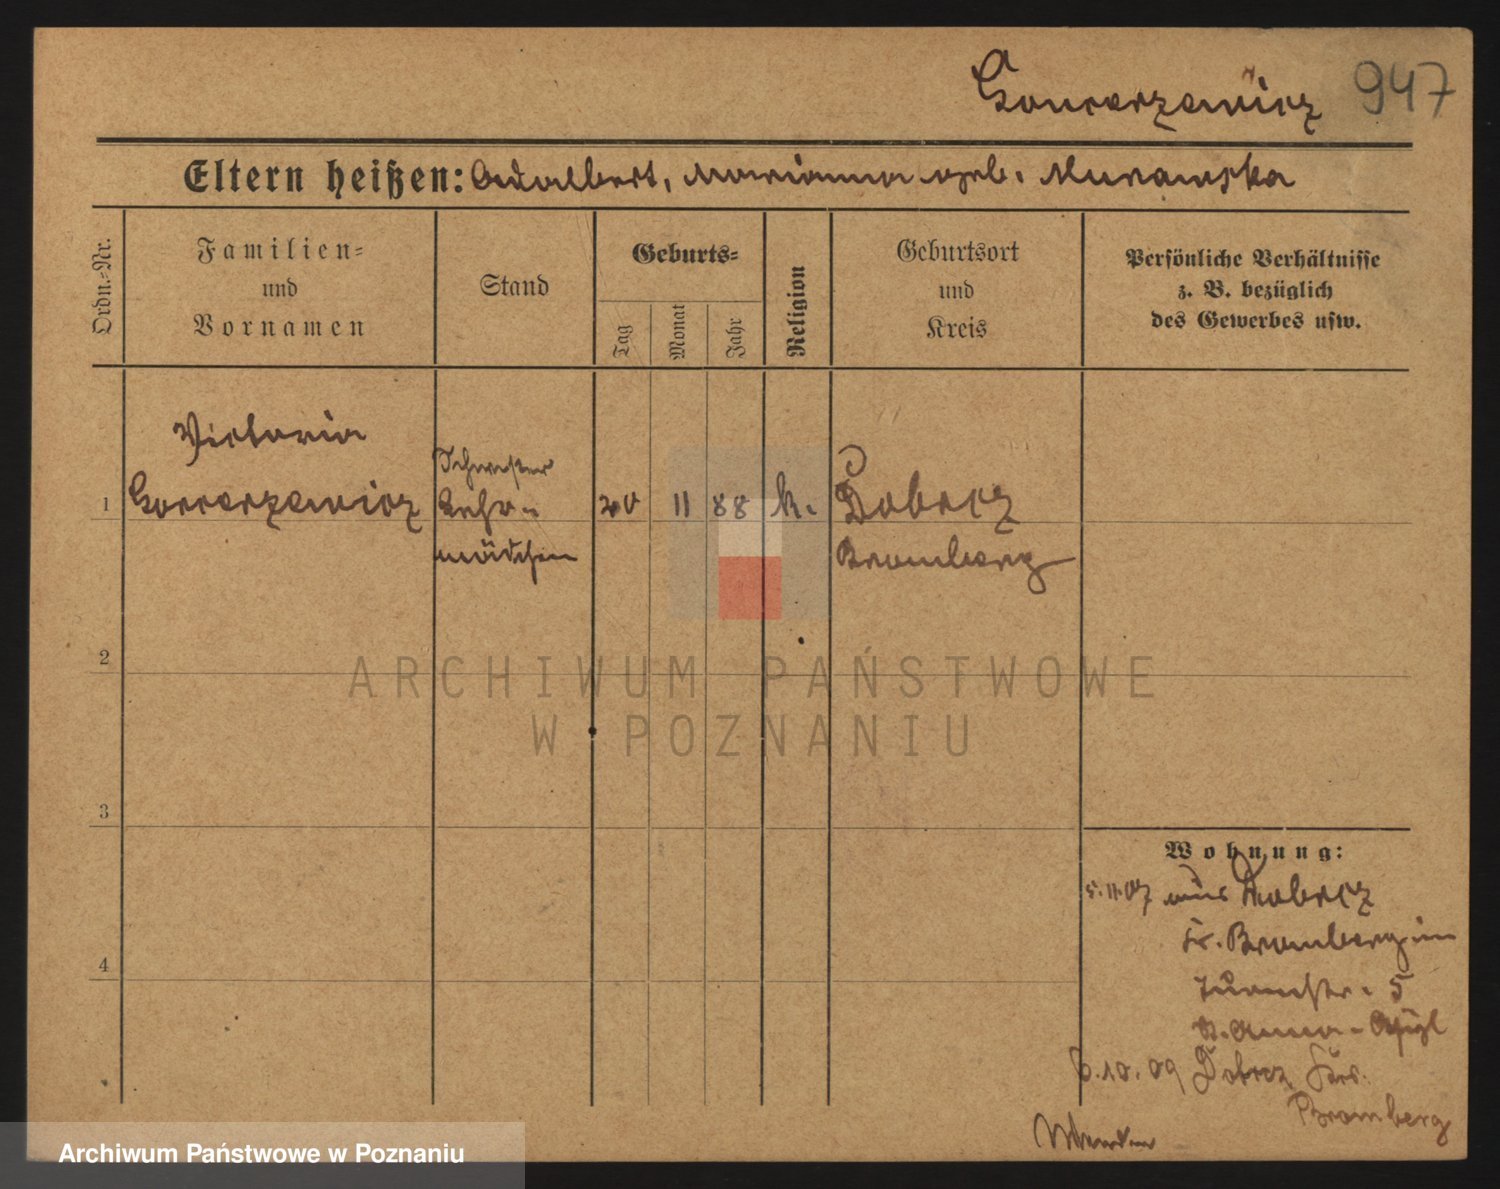 Goncerzewicz 947
Eltern heißen: Adalbert, Marianna geb. Murawska
Ordn.-Nr.
Familien-
und
Vornamen
Stand
Geburts-
Tag
Monat
Jahr
Religion
Geburtsort
und
Kreis
Persönliche Verhältnisse
z. B. bezüglich
des Gewerbes usw.
Victoria
1 Goncerzewicz
Schwester
Lehr-
mädchen
20 11 88 k.
Dobrcz
Bromberg
2
ARCHIWUM PAŃSTWOWE
W POZNANIU
3
4
Wohnung:
5.11.07 aus Dobrcz
Kr. Bromberg in
5
St. Anna-
6.10.09 Dobrcz Krs.
Bromberg
Archiwum Państwowe w Poznaniu